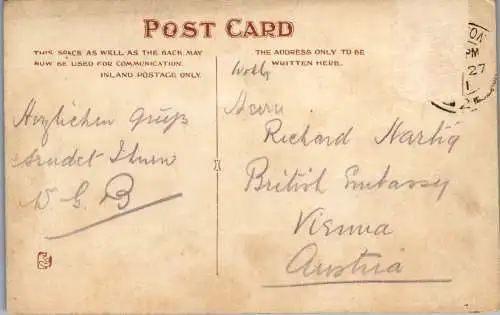 POST CARD
THIS SPACE AS WELL AS THE BACK MAY
NOW BE USED FOR COMMUNICATION.
INLAND POSTAGE ONLY.
THE ADDRESS ONLY TO BE
WRITTEN HERE.
PM
27
1
Herzlichen Gruß
sendet Ihnen
W. G. B
Herrn
Richard Hartig
British Embassy
Vienna
Austria